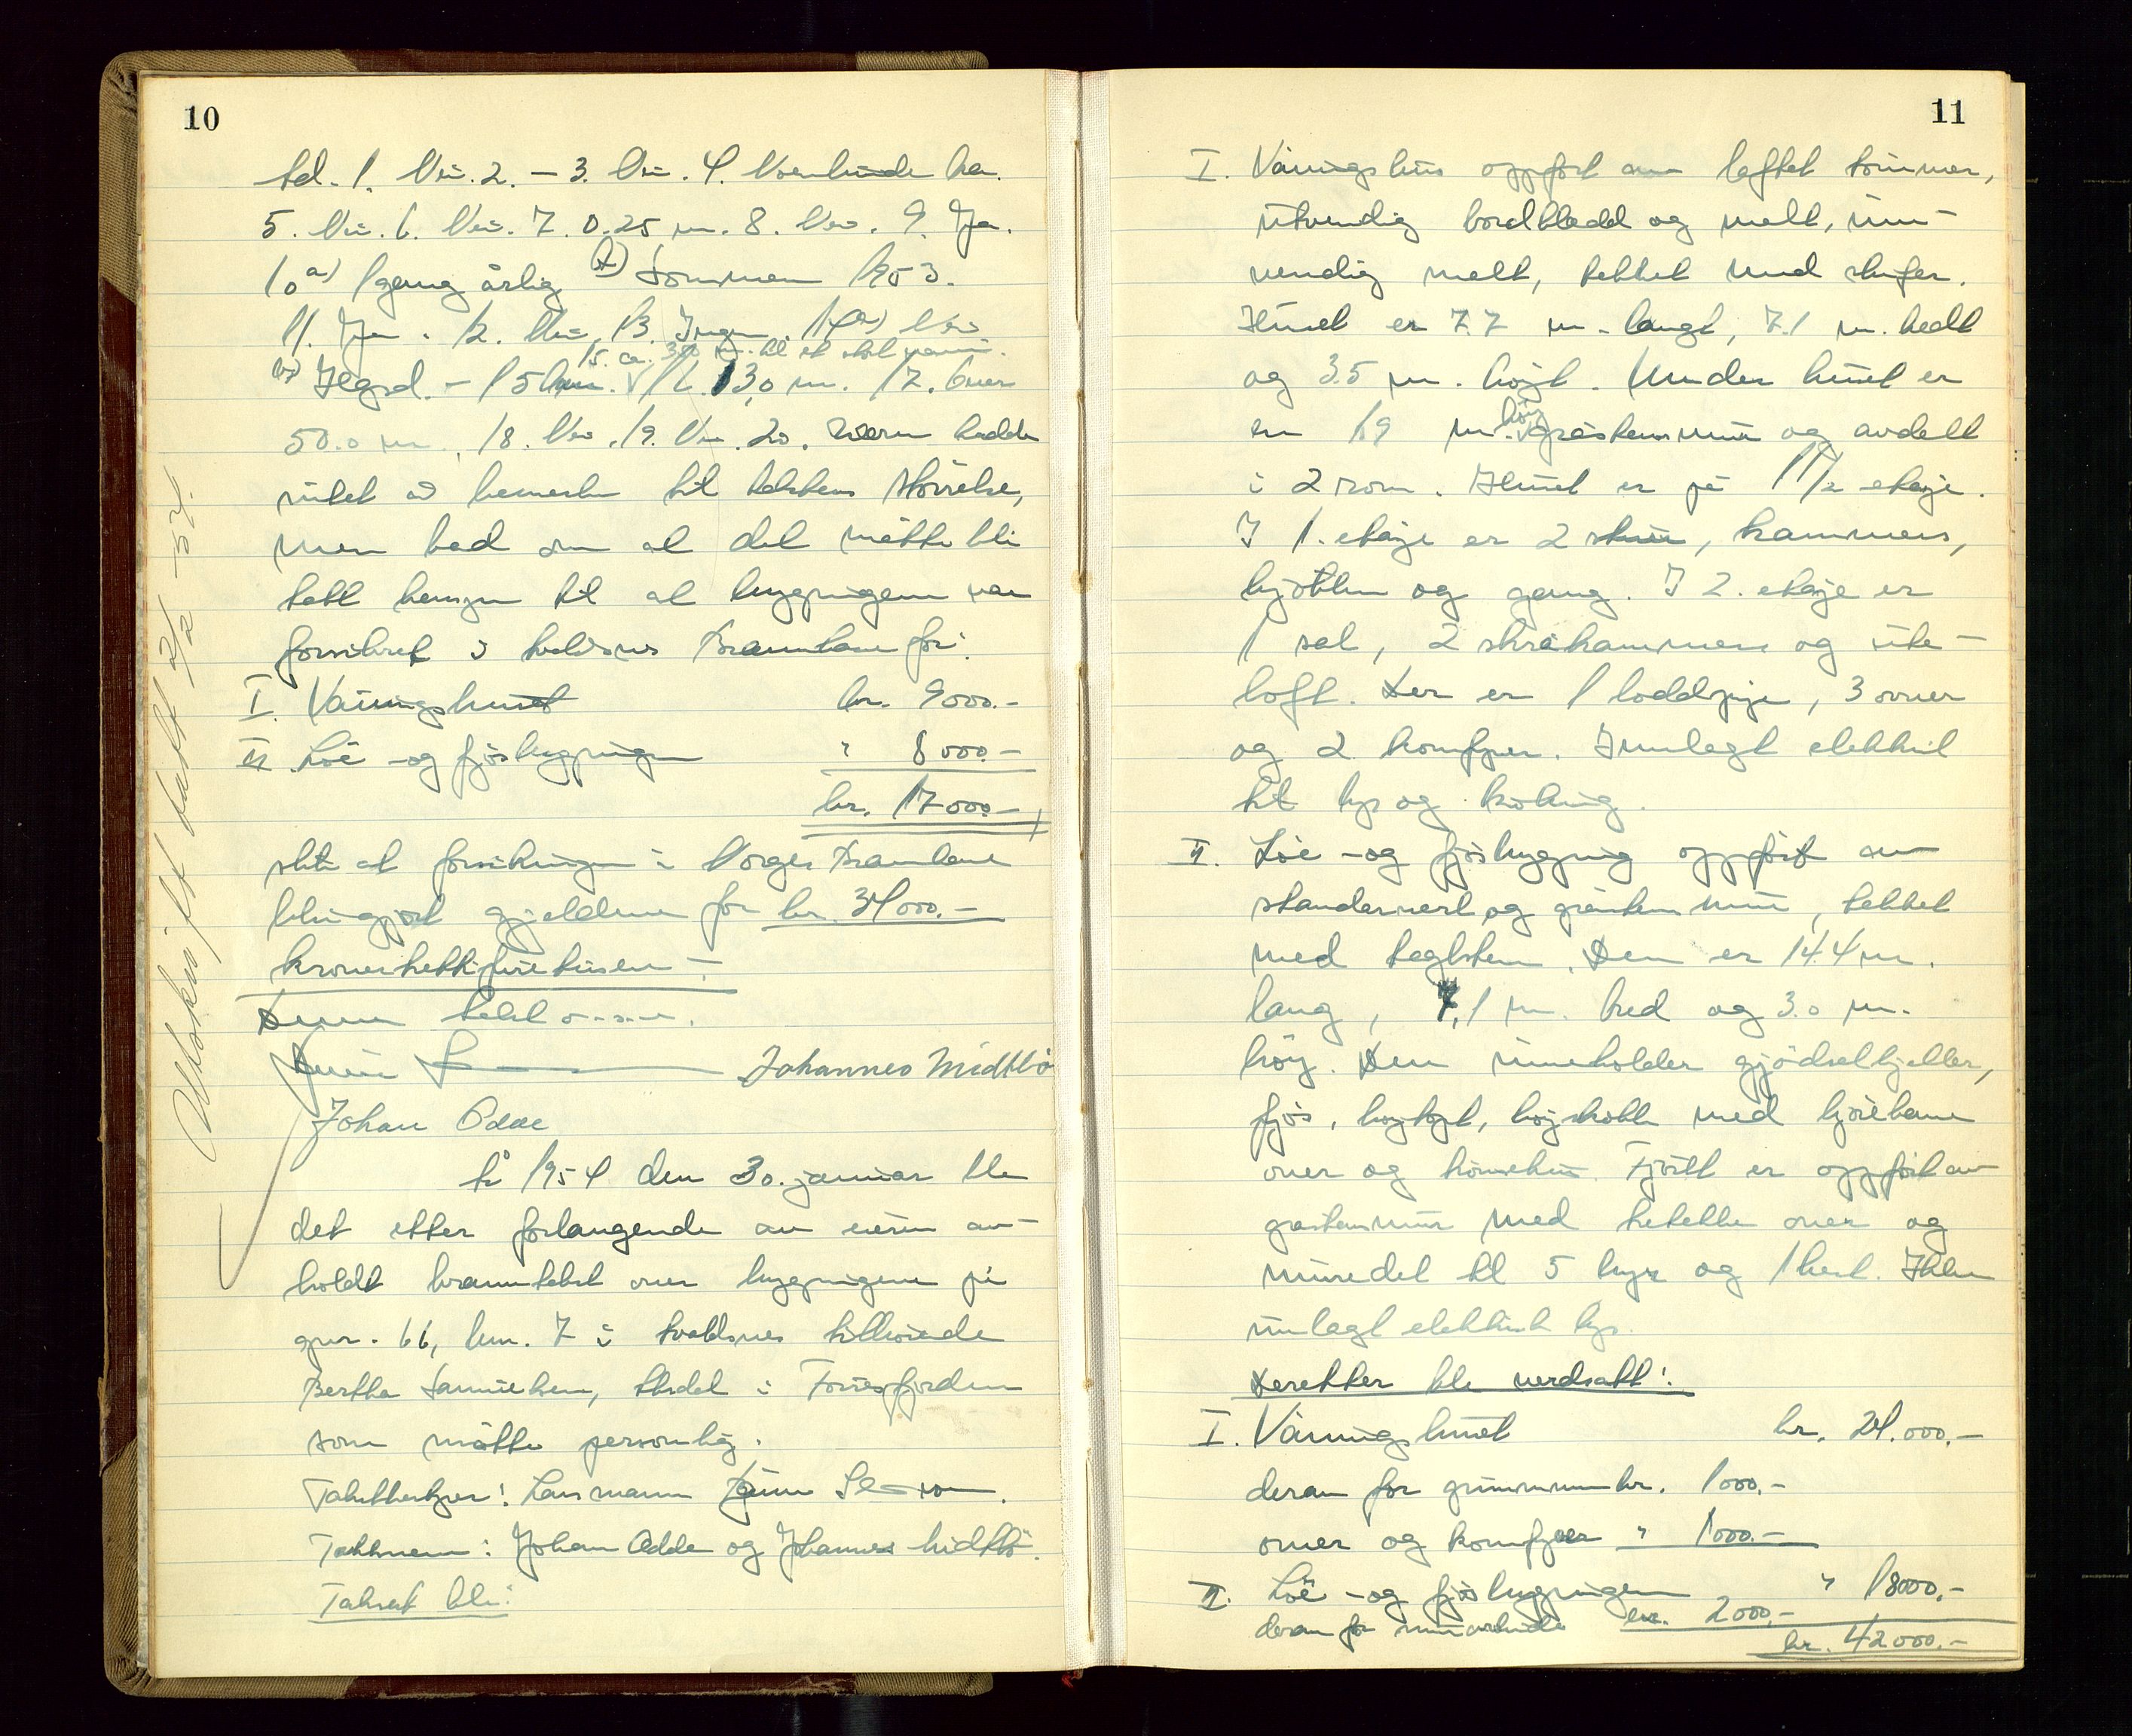 10
tel. 1. Nei. 2. – 3. Nei. 4.
5. Nei. 6. Nei. 7. 0.25 m. 8. Nei. 9. Ja.
10 a) 1 gang årlig b) Sommeren 1953.
11. Ja. 12. Nei, 13. Ingen. 14 a) Nei
15. ca. 300 m. til et
b) 16. 13,0 m. 17. Over
50.0 m., 18. Nei. 19. Nei. 20. hadde
intet å bemerke til takstens størrelse,
men bad om at det måtte bli
tatt hensyn til at bygningene var
forsikret i Avaldsnes Branntrygd for:
I. Våningshuset kr. 9000.-
II. Løe -og fjøsbygningen " 8000.-
kr. 17000.-
slik at forsikringen i Norges Brannkasse
blir gjort gjeldene for kr. 34000.-
kronertrettifiretusen –
Denne takst
Johannes Midtbø
Johan Odde
År 1954 den 30. januar ble
det etter forlangende av eieren av-
holdt branntakst over bygningene på
gnr. 66, bnr. 7 i Avaldsnes tilhørende
Bertha Samuelsen, Stedet i Førresfjorden
som møtte personlig.
Takstbestyrer: Lensmann
Takstmenn: Johan Odde og Johannes Midtbø.
Taksert ble:
Utskrift datt 2/2 -54.
11
I. Våningshus oppført av laftet tømmer,
utvendig bordkledd og malt, inn-
vendig malt, tekket med skifer.
Huset er 7.7 m. langt, 7.1 m. bredt
og 3.5 m. høyt. Under huset er
en 1.9 m. høy gråstensmur og avdelt
i 2 rom. Huset er på 1 1/2 etasje.
I 1. etasje er 2 stuer, kammers,
kjøkken og gang. I 2. etasje er
1 sal, 2 skråkammers og ute-
loft. Der er 1 loddpipe, 3 ovner
og 2 komfyrer. Innlagt elektrisk
til lys og koking.
II. Løe -og fjøsbygning oppført av
standerverk og gråstensmur, tekket
med teglsten. Den er 14.4 m.
lang, 7,1 m. bred og 3.0 m.
høy. Den inneholder gjødselkjeller,
fjøs, høyhogt, høyskott med kjørebane
over og hønsehus. Fjøset er oppført av
gråstensmur med trekle over og
innredet til 5 kyr og 1 hest. Ikke
innlagt elektrisk lys.
Deretter ble verdsatt:
I. Våningshuset kr. 24.000.-
derav for grunnmur kr. 1000.-
ovner og komfyrer " 1000.-
II. Løe -og fjøsbygningen " 18000.-
derav for murarbeide kr. 2000.-
kr. 42000.-